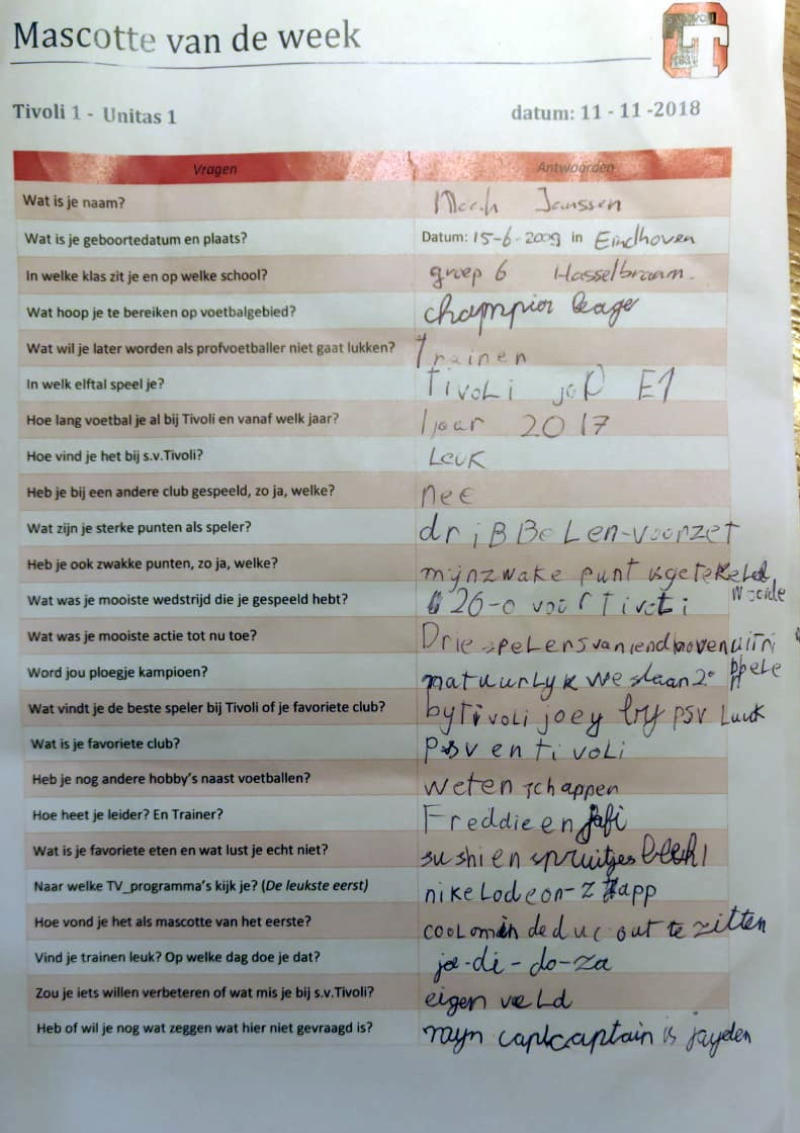 Mascotte van de week
T
Tivoli 1 - Unitas 1 datum: 11 - 11 -2018
Vragen Antwoorden
Wat is je naam? Janssen
Wat is je geboortedatum en plaats? Datum: 15-6-2009 in Eindhoven
In welke klas zit je en op welke school? groep 6
Wat hoop je te bereiken op voetbalgebied? champion leage
Wat wil je later worden als profvoetballer niet gaat lukken? Trainen
In welk elftal speel je? TivoLi E1
Hoe lang voetbal je al bij Tivoli en vanaf welk jaar? 1 jaar 2017
Hoe vind je het bij s.v.Tivoli? LeuK
Heb je bij een andere club gespeeld, zo ja, welke? nee
Wat zijn je sterke punten als speler? driBBeLen-voorzet
Heb je ook zwakke punten, zo ja, welke? mijn zwake punt is
Wat was je mooiste wedstrijd die je gespeeld hebt? 26-0 voor Tivoli
Wat was je mooiste actie tot nu toe? Drie speLers van
Word jou ploegje kampioen? natuurlyk we staan 2e
Wat vindt je de beste speler bij Tivoli of je favoriete club? by Tivoli joey by psv Luuk
Wat is je favoriete club? psv en tivoLi
Heb je nog andere hobby's naast voetballen? wetenschappen
Hoe heet je leider? En Trainer? Freddie en
Wat is je favoriete eten en wat lust je echt niet? sushi en spruitjes
Naar welke TV_programma's kijk je? (De leukste eerst) nikeLodeon-Zapp
Hoe vond je het als mascotte van het eerste? cooL om in de duc out te zitten
Vind je trainen leuk? Op welke dag doe je dat? ja-di-do-za
Zou je iets willen verbeteren of wat mis je bij s.v.Tivoli? eigen veld
Heb of wil je nog wat zeggen wat hier niet gevraagd is? mijn captain is jayden